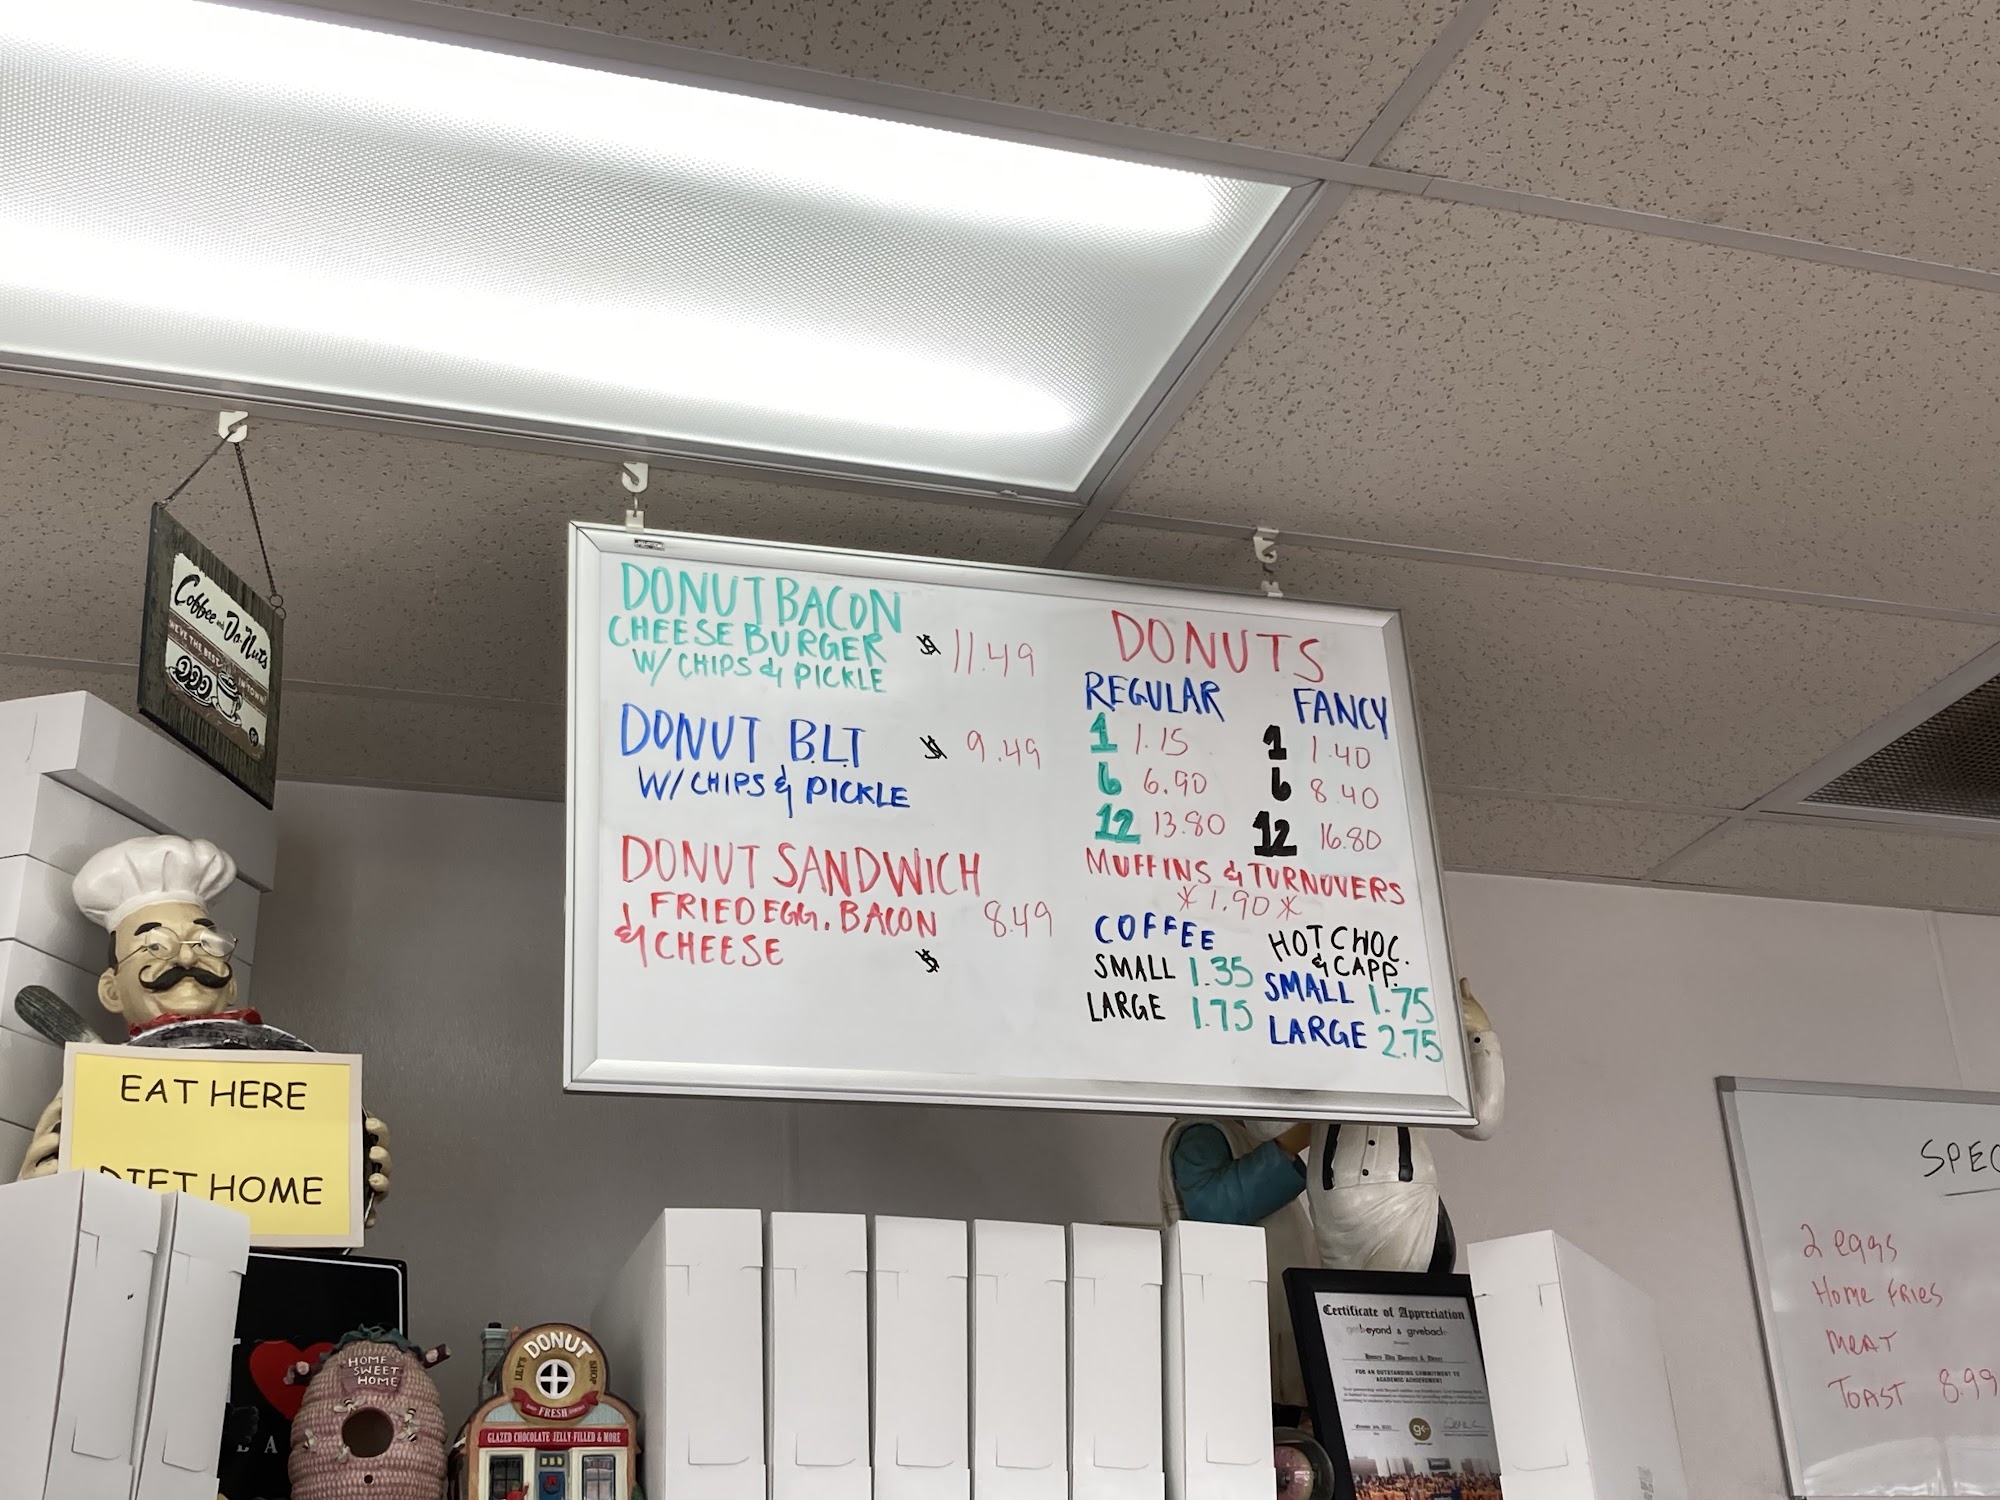 Coffee and Do-Nuts
WE'VE THE BEST
IN TOWN!
DONUT BACON
CHEESE BURGER
W/ CHIPS & PICKLE
$ 11.49
DONUT B.L.T
$ 9.49
W/ CHIPS & PICKLE
DONUT SANDWICH
1 FRIED EGG. BACON 8.49
& CHEESE
$
DONUTS
REGULAR FANCY
1 1.15 1 1.40
6 6.90 6 8.40
12 13.80 12 16.80
MUFFINS & TURNOVERS
* 1.90 *
COFFEE
SMALL 1.35
LARGE 1.75
HOT CHOC.
& CAPP.
SMALL 1.75
LARGE 2.75
EAT HERE
DIET HOME
HOME
SWEET
HOME
LILY'S DONUT SHOP
FRESH
GLAZED CHOCOLATE JELLY-FILLED & MORE
Certificate of Appreciation
beyond & giveback
FOR AN OUTSTANDING COMMITMENT TO
ACADEMIC ACHIEVEMENT
SPEC
2 eggs
Home fries
meat
Toast 8.99